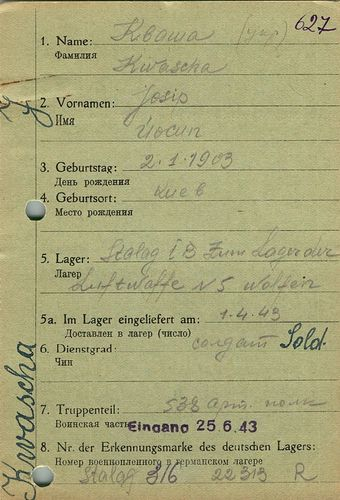 627
1. Name: Кваша (укр)
Фамилия
Kwascha
2. Vornamen: Josip
Имя
Йосип
3. Geburtstag: 2.1.1903
День рождения
4. Geburtsort: Киев
Место рождения
5. Lager: Stalag I B Zum Lager der
Лагерь
Luftwaffe N 5 Wolfen
5a. Im Lager eingeliefert am: 1.4.43
Доставлен в лагерь (число)
6. Dienstgrad: солдат Sold.
Чин
7. Truppenteil: 538 арт. полк
Воинская часть
Eingang 25.6.43
8. Nr. der Erkennungsmarke des deutschen Lagers:
Номер военнопленного в германском лагере
Stalag 316 22313 R
Kwascha